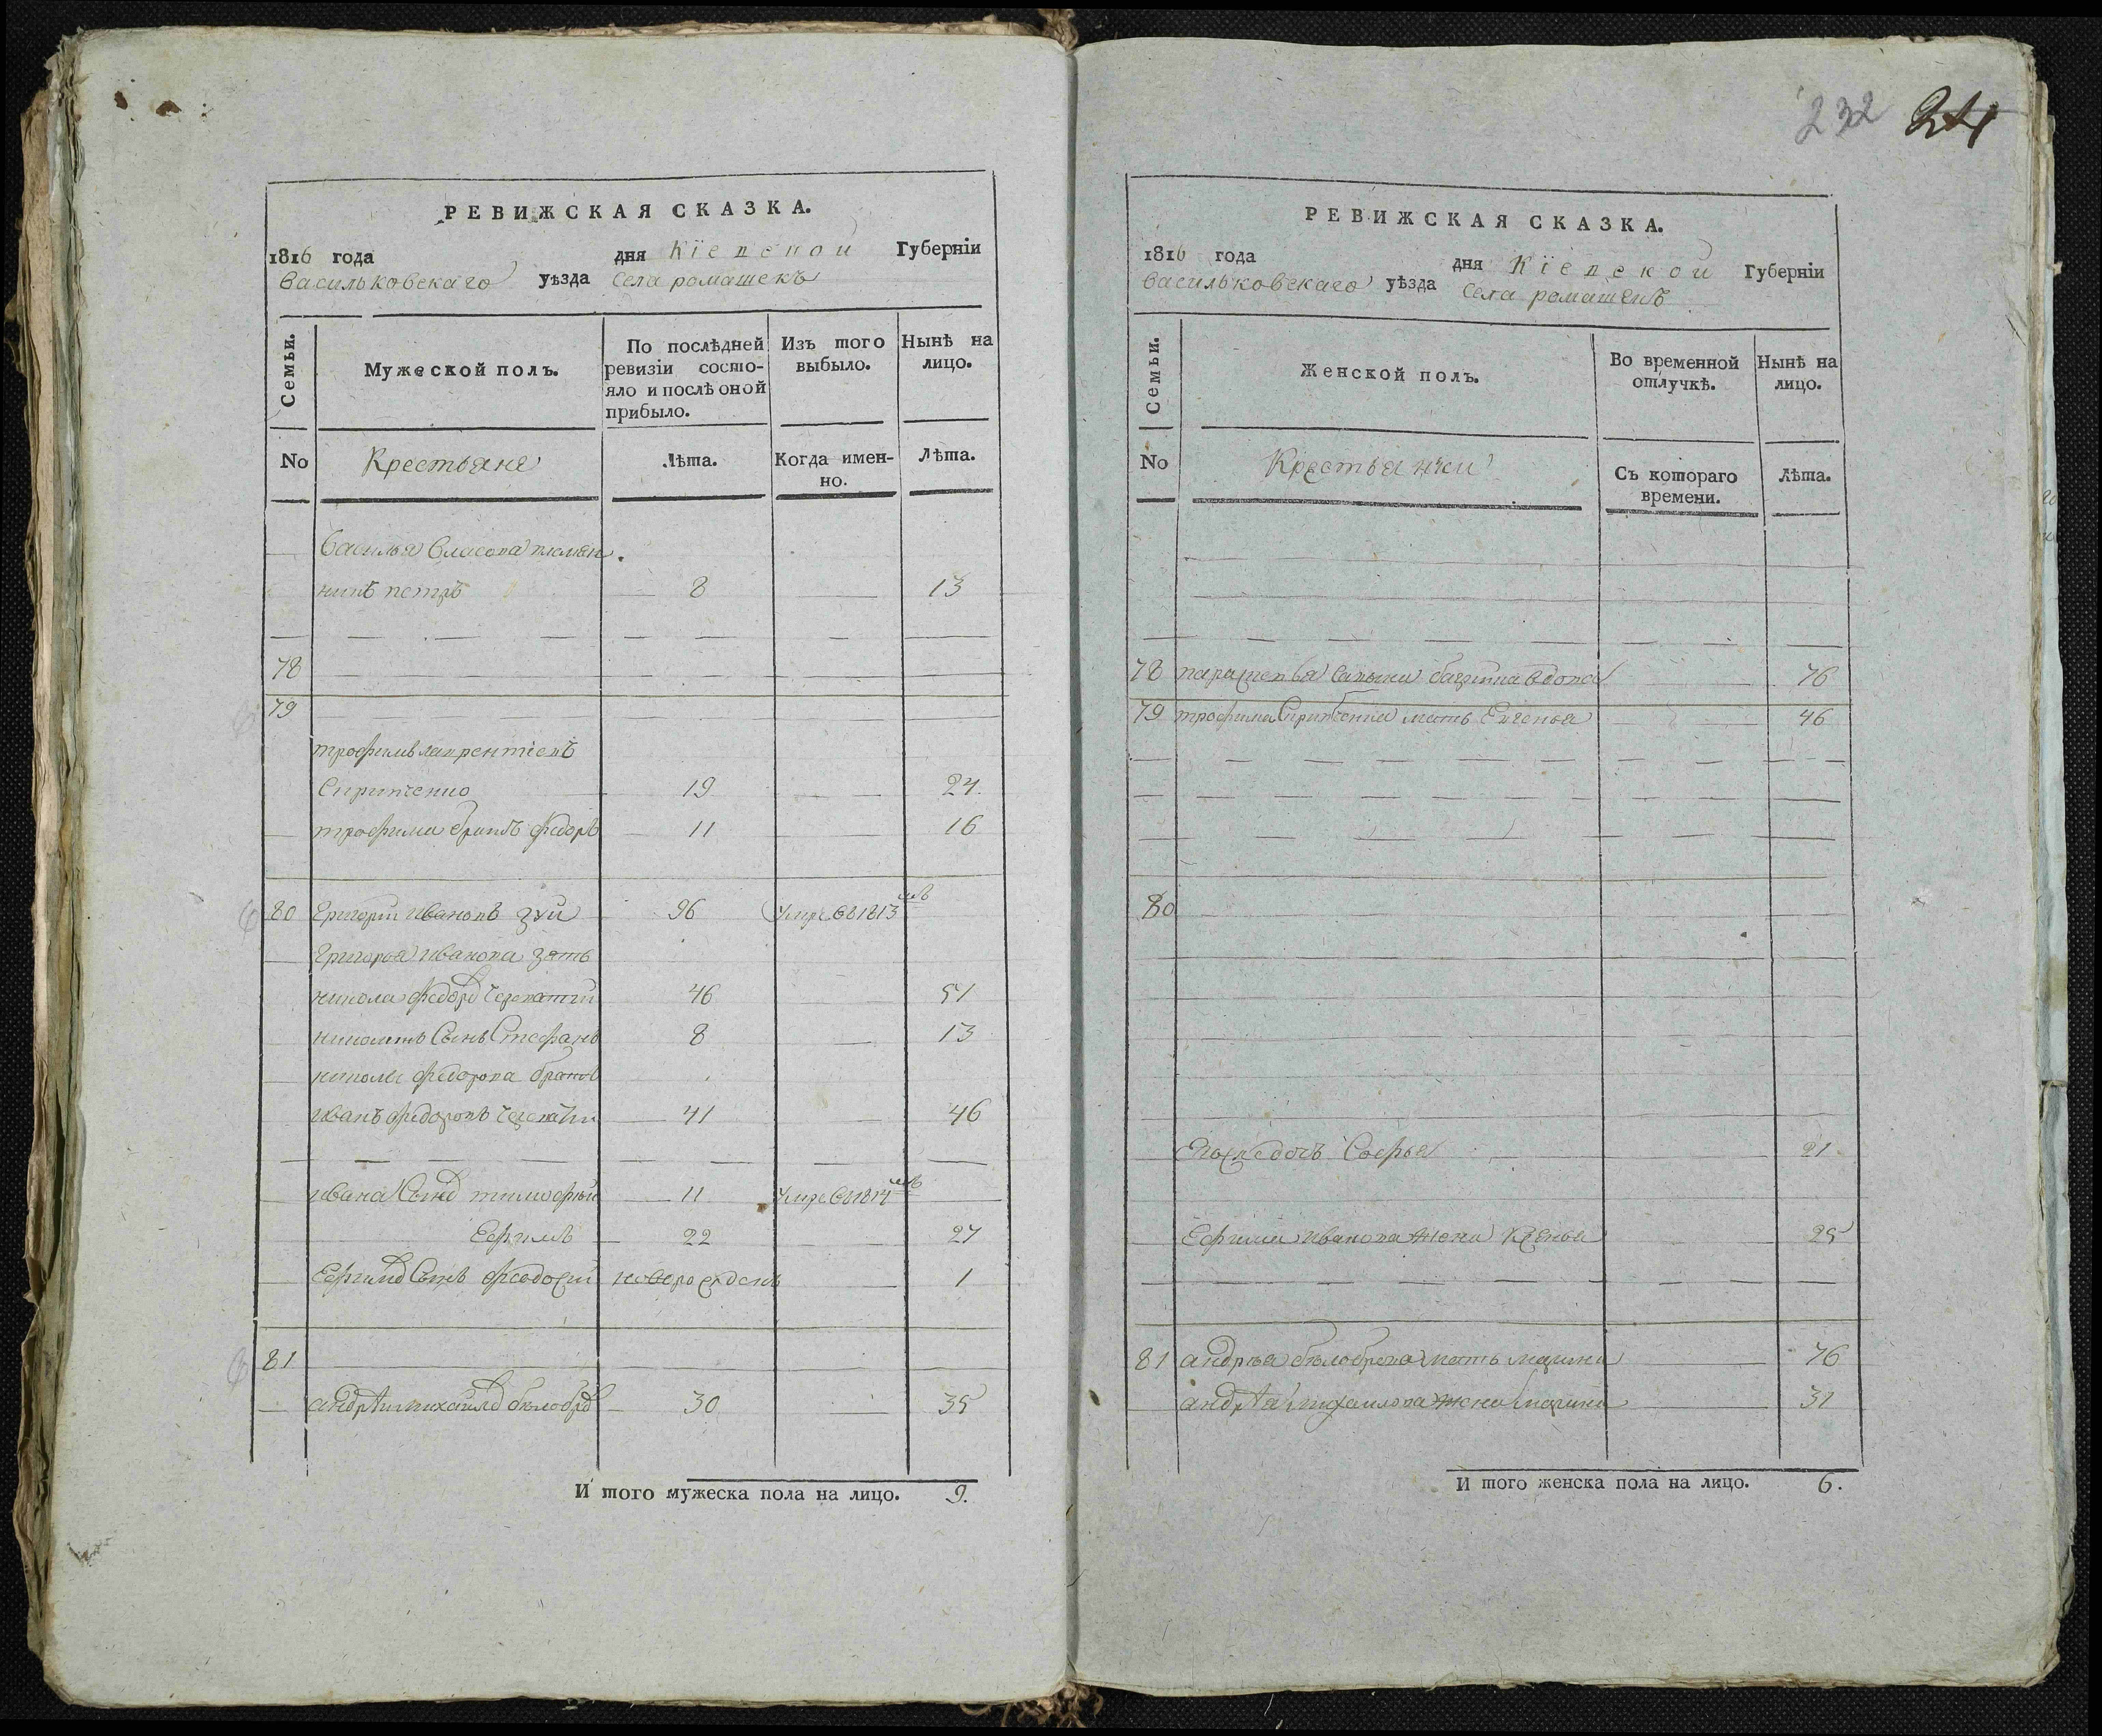 РЕВИЖСКАЯ СКАЗКА.
1816 года дня Кіевской Губерніи
Васильковскаго уѣзда Села ромашекъ
Семьи.
Мужеской полъ.
По послѣдней ревизіи состо-
яло и послѣ оной
прибыло.
Изъ того
выбыло.
Нынѣ на
лицо.
No
Крестьяне
Лѣта.
Когда имен-
но.
Лѣта.
Василья Власова племян
никъ петръ 8 13
78
79
трофимъ лаврентіевъ
Скрипченко 19 24
трофима братъ федоръ 11 16
80 Григорій Ивановъ зуй 96 умре в 1813мъ
Григорья Иванова зять
никола федоръ 46 51
Сынъ Стефанъ 8 13
николы федорова братъ
Иванъ федоровъ 41 46
Ивана Сынъ тимофѣй 11 умре в 1814мъ
Ефимъ 22 27
Ефима Сынъ феодосій новорожденъ 1
81
андрѣй михайло 30 35
И того мужеска пола на лицо. 9.
232 24
РЕВИЖСКАЯ СКАЗКА.
1816 года дня Кіевской Губерніи
Васильковскаго уѣзда Села ромашекъ
Семьи.
Женской полъ.
Во временной
отлучкѣ.
Нынѣ на
лицо.
No
Крестьянки
Съ котораго
времени.
Лѣта.
78 параскевья вдова 76
79 трофима Скрипченка мать Евгенья 46
80
Его дочь Софья 21
Ефима Иванова жена Ксенья 25
81 андрѣя мать марина 76
андрѣя михайлова жена марина 31
И того женска пола на лицо. 6.